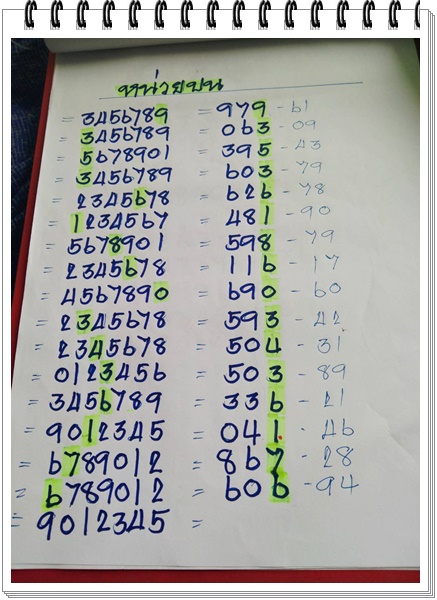 หน่วยบน
= 3456789 = 979 - 61
= 3456789 = 063 - 09
= 5678901 = 395 - 43
= 3456789 = 603 - 79
= 2345678 = 626 - 78
= 1234567 = 481 - 90
= 5678901 = 598 - 79
= 2345678 = 116 - 17
= 4567890 = 690 - 60
= 2345678 = 593 - 42
= 2345678 = 504 - 31
= 0123456 = 503 - 89
= 3456789 = 336 - 21
= 9012345 = 041 - 46
= 6789012 = 867 - 28
= 6789012 = 606 - 94
= 9012345 =